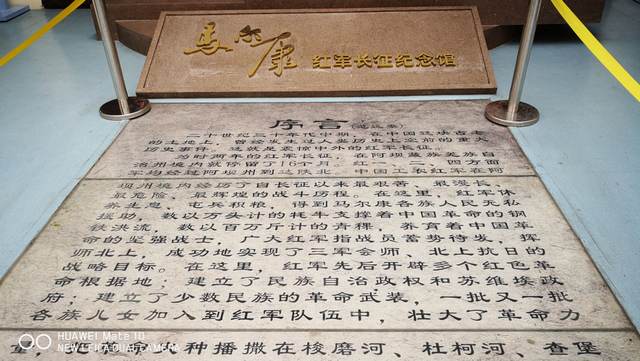 马尔康 红军长征纪念馆
序言
二十世纪三十年代中期，在中国这块古老
的土地上，曾经发生过人类历史上空前的重大
历史事件，这就是震惊中外的红军长征。
当时两年的红军长征，在阿坝藏族羌族自
治州境内就停留了16个月，红一、四方面
军均经过阿坝州到达陕北，中国工农红军在阿
坝州境内经历了自长征以来最艰苦、最漫长、
最危险、最辉煌的战斗历程。在这里，红军休
养生息，屯兵积粮，得到马尔康各族人民无私
援助，数以万头计的牦牛支撑着中国革命的钢
铁洪流，数以百万斤计的青稞，养育着中国革
命的坚强战士，广大红军指战员蓄势待发，挥
师北上，成功地实现了三军会师、北上抗日的
战略目标。在这里，红军先后开辟多个红色革
命根据地；建立了民族自治政权和苏维埃政
府；建立了少数民族的革命武装，一批又一批
各族儿女加入到红军队伍中，壮大了革命力
种播撒在梭磨河、杜柯河、查堡
HUAWEI Mate 10
NEW LEICA DUAL CAMERA